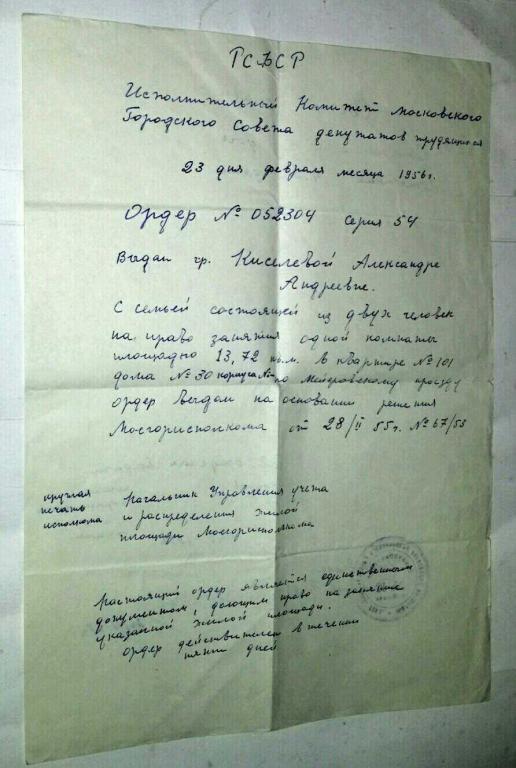 РСФСР
Исполнительный Комитет Московского
Городского Совета депутатов трудящихся
23 дня февраля месяца 1956 г.
Ордер № 052304 Серия 54
Выдан гр. Киселевой Александре
Андреевне.
С семьей состоящей из двух человек
на право занятия одной комнаты
площадью 13,72 кв.м. в квартире № 101
дома № 30 корпуса №- по Мейеровскому проезду
ордер выдан на основании решения
Мосгорисполкома от 28/II 55 г. № 67/55
круглая
печать
исполкома
Начальник Управления учета
и распределения жилой
площади Мосгорисполкома
Настоящий ордер является единственным
документом, дающим право на занятие
указанной жилой площади.
Ордер действителен в течении
пяти дней